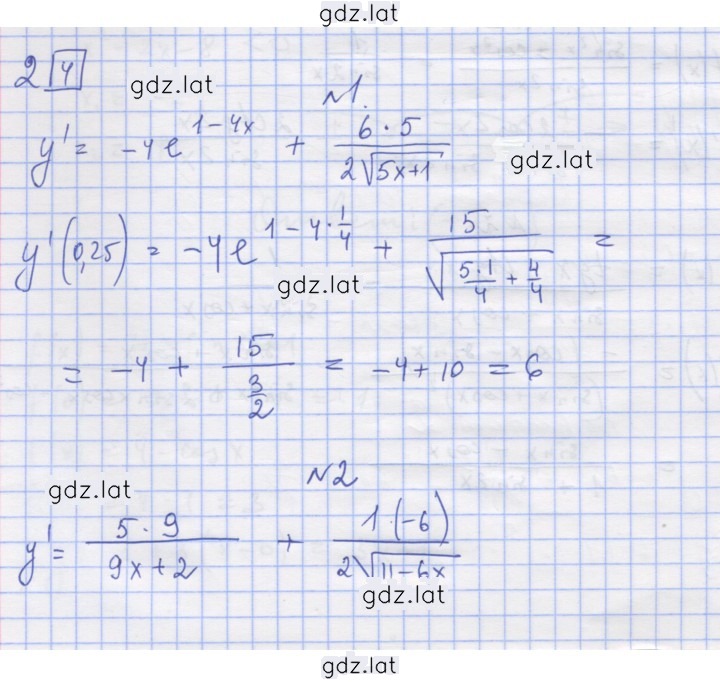 gdz.lat
2 4
gdz.lat
№1.
y' = -4e^{1-4x} + \frac{6 \cdot 5}{2\sqrt{5x+1}}
gdz.lat
y'(0,25) = -4e^{1-4 \cdot \frac{1}{4}} + \frac{15}{\sqrt{\frac{5 \cdot 1}{4} + \frac{4}{4}}} =
gdz.lat
= -4 + \frac{15}{\frac{3}{2}} = -4 + 10 = 6
№2
gdz.lat
y' = \frac{5 \cdot 9}{9x+2} + \frac{1 \cdot (-6)}{2\sqrt{11-6x}}
gdz.lat
gdz.lat